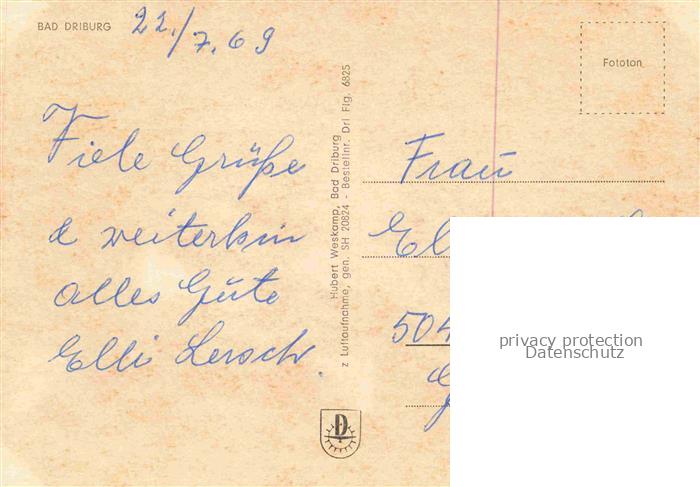 BAD DRIBURG
22./7.69
Viele Grüße
& weiterhin
alles Gute
Elli Lersch.
Hubert Weskamp, Bad Driburg
z Luftaufnahme, gen. SH 20824 - Bestellnr. Dri Flg. 6825
Fototon
Frau
El
504
privacy protection
Datenschutz